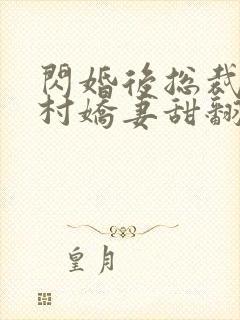 閃婚後総裁
村嬌妻甜翻
皇月